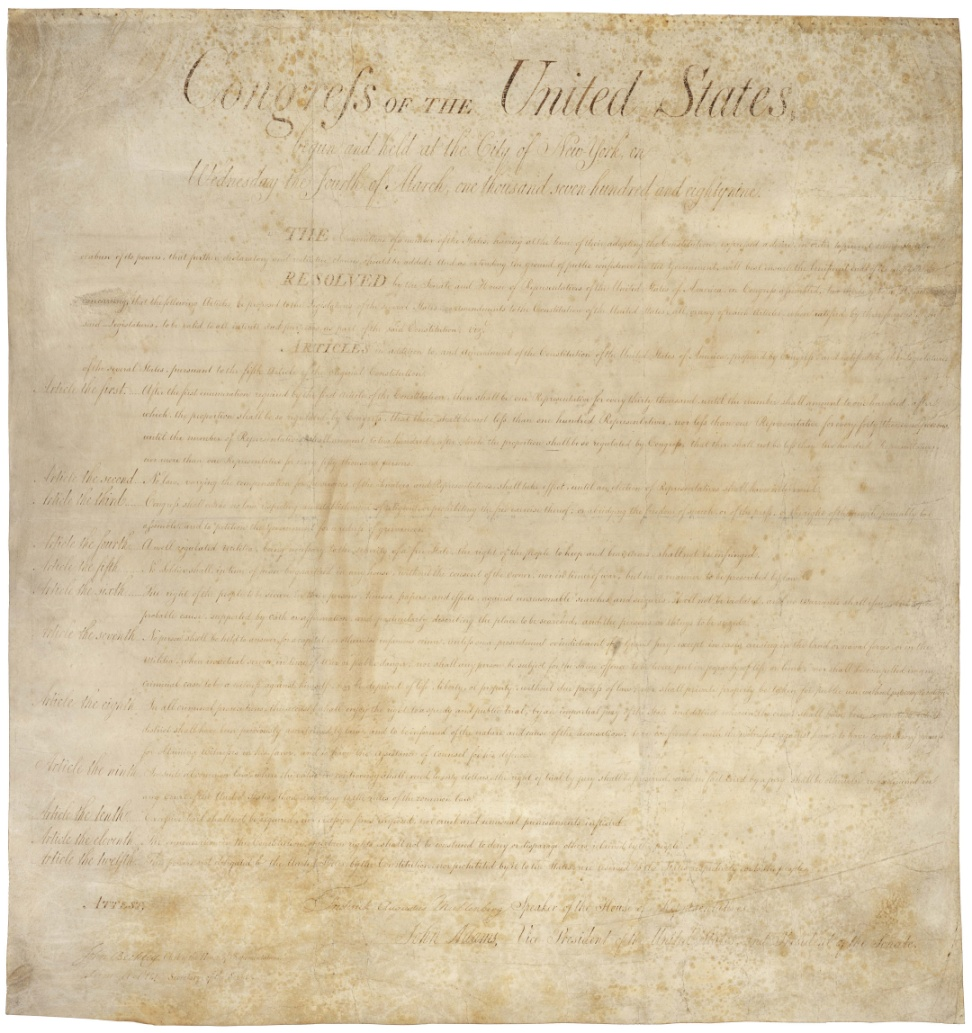 Congress OF THE United States,
begun and held at the City of New-York, on
Wednesday the fourth of March, one thousand seven hundred and eighty nine.
THE Conventions of a number of the States, having at the time of their adopting the Constitution, expressed a desire, in order to prevent
of its powers, that further declaratory and restrictive clauses should be added: And as extending the ground of public confidence in the Government, will best ensure the beneficent ends of its
RESOLVED by the Senate and House of Representatives of the United States of America, in Congress assembled, two thirds of
concurring, that the following Articles be proposed to the Legislatures of the several States, as amendments to the Constitution of the United States, all, or any of which Articles, when ratified by three fourths of
said Legislatures, to be valid to all intents and purposes, as part of the said Constitution; viz.
ARTICLES in addition to, and Amendment of the Constitution of the United States of America, proposed by Congress, and ratified by the Legislatures
of the several States, pursuant to the fifth Article of the original Constitution.
Article the first. After the first enumeration required by the first Article of the Constitution, there shall be one Representative for every thirty thousand, until the number shall amount to one hundred, after
which, the proportion shall be so regulated by Congress, that there shall be not less than one hundred Representatives, nor less than one Representative for every forty thousand persons,
until the number of Representatives shall amount to two hundred, after which the proportion shall be so regulated by Congress, that there shall not be less than two hundred Representatives,
nor more than one Representative for every fifty thousand persons.
Article the second. No law, varying the compensation for the services of the Senators and Representatives, shall take effect, until an election of Representatives shall have intervened.
Article the third. Congress shall make no law respecting an establishment of religion, or prohibiting the free exercise thereof; or abridging the freedom of speech, or of the press; or the right of the people peaceably to
assemble, and to petition the Government for a redress of grievances.
Article the fourth. A well regulated Militia, being necessary to the security of a free State, the right of the people to keep and bear Arms, shall not be infringed.
Article the fifth. No Soldier shall, in time of peace be quartered in any house, without the consent of the owner, nor in time of war, but in a manner to be prescribed by law.
Article the sixth. The right of the people to be secure in their persons, houses, papers, and effects, against unreasonable searches and seizures, shall not be violated, and no Warrants shall issue, but upon
probable cause, supported by oath or affirmation, and particularly describing the place to be searched, and the persons or things to be seized.
Article the seventh. No person shall be held to answer for a capital, or otherwise infamous crime, unless on a presentment or indictment of a Grand Jury, except in cases arising in the land or naval forces, or in the
Militia, when in actual service in time of War or public danger; nor shall any person be subject for the same offence to be twice put in jeopardy of life or limb; nor shall be compelled in any
criminal case to be a witness against himself, nor be deprived of life, liberty, or property, without due process of law; nor shall private property be taken for public use, without just compensation.
Article the eighth. In all criminal prosecutions, the accused shall enjoy the right to a speedy and public trial, by an impartial jury of the State and district wherein the crime shall have been committed, which
district shall have been previously ascertained by law, and to be informed of the nature and cause of the accusation; to be confronted with the witnesses against him; to have compulsory process
for obtaining witnesses in his favor, and to have the assistance of counsel for his defence.
Article the ninth. In suits at common law, where the value in controversy shall exceed twenty dollars, the right of trial by jury shall be preserved, and no fact tried by a jury, shall be otherwise re-examined in
any Court of the United States, than according to the rules of the common law.
Article the tenth. Excessive bail shall not be required, nor excessive fines imposed, nor cruel and unusual punishments inflicted.
Article the eleventh. The enumeration in the Constitution, of certain rights, shall not be construed to deny or disparage others retained by the people.
Article the twelfth. The powers not delegated to the United States by the Constitution, nor prohibited by it to the States, are reserved to the States respectively, or to the people.
ATTEST,
Frederick Augustus Muhlenberg Speaker of the House of Representatives.
John Adams, Vice President of the United States, and President of the Senate.
John Beckley, Clerk of the House of Representatives.
Secretary of the Senate.